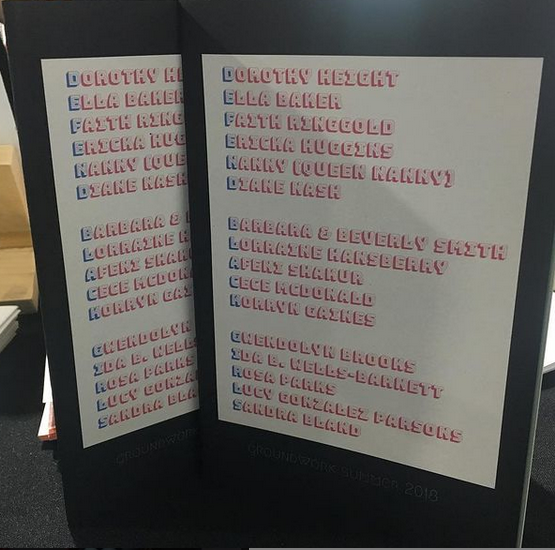 DOROTHY HE
ELLA BAKER
FAITH RING
ERICKA HUG
NANNY (QUE
DIANE NASH
BARBARA & B
LORRAINE H
AFENI SHAKU
CECE MCDONA
KORRYN GAI
GWENDOLYN
IDA B. WELLS
ROSA PARKS
LUCY GONZAL
SANDRA BLA
GROUNDWORK
DOROTHY HEIGHT
ELLA BAKER
FAITH RINGGOLD
ERICKA HUGGINS
NANNY (QUEEN NANNY)
DIANE NASH
BARBARA & BEVERLY SMITH
LORRAINE HANSBERRY
AFENI SHAKUR
CECE MCDONALD
KORRYN GAINES
GWENDOLYN BROOKS
IDA B. WELLS-BARNETT
ROSA PARKS
LUCY GONZALEZ PARSONS
SANDRA BLAND
GROUNDWORK SUMMER 2018